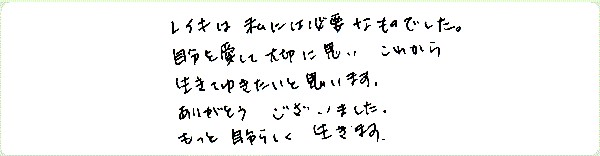 レイキは 私には必要なものでした。
自分を愛して大切に思い これから
生きてゆきたいと思います。
ありがとう ございました。
もっと 自分らしく 生きます。